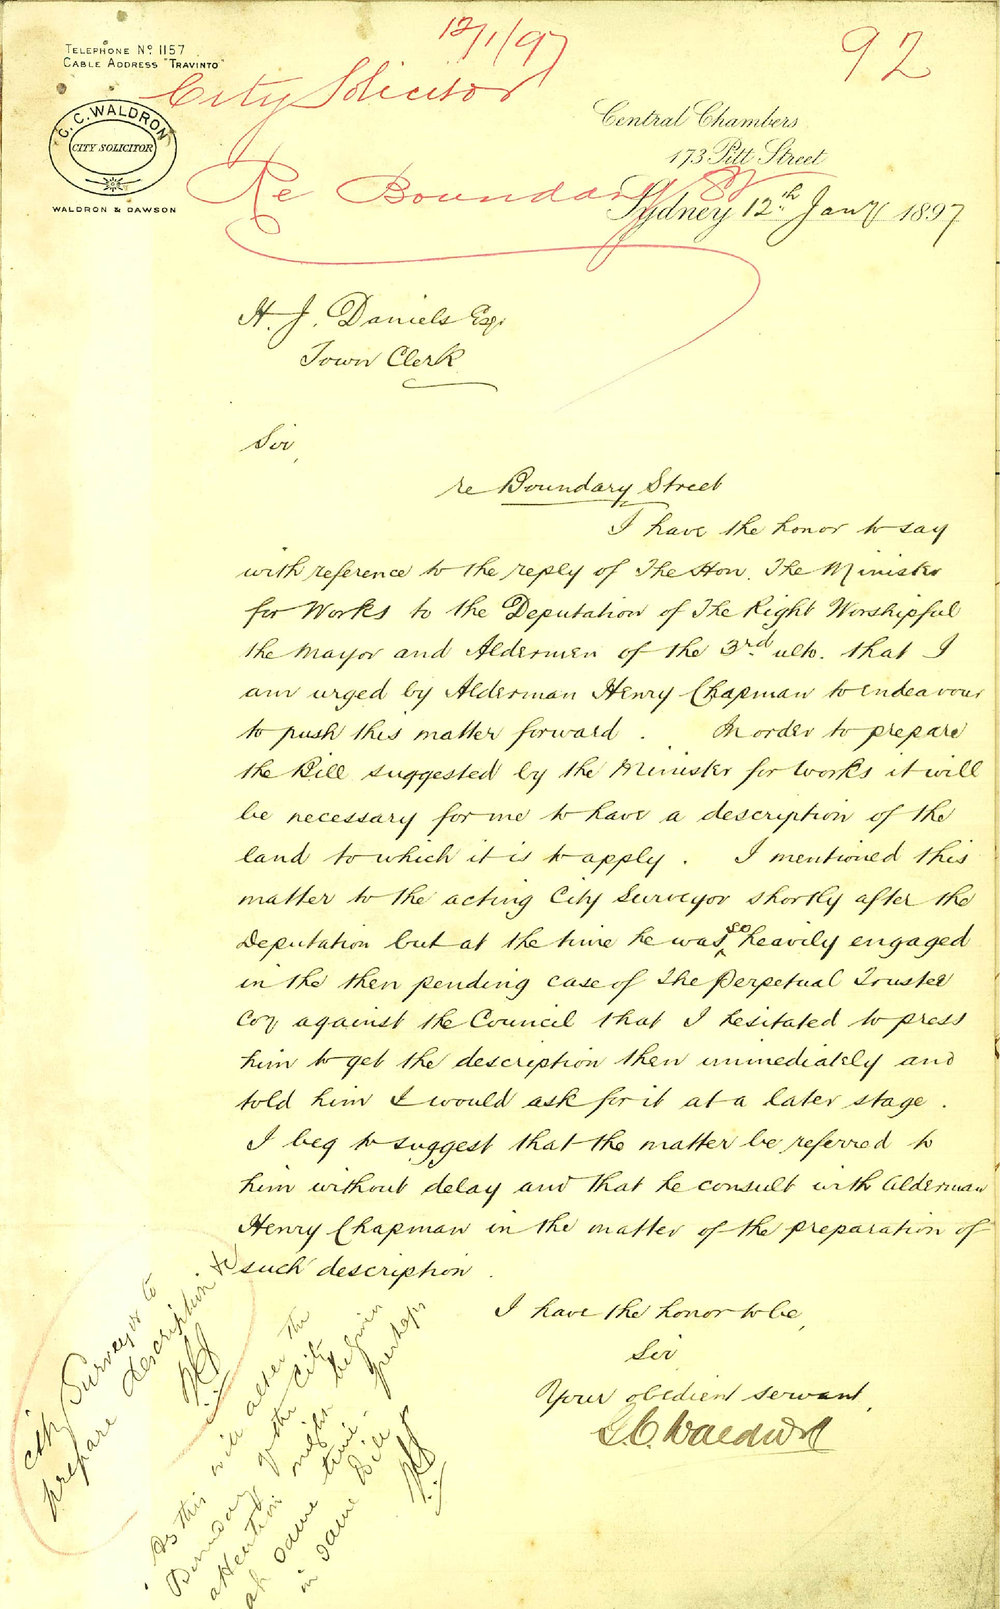 TELEPHONE No 1157
CABLE ADDRESS "TRAVINTO"
12/1/97
92
City Solicitor
C. C. WALDRON
CITY SOLICITOR
WALDRON & DAWSON
Central Chambers
173 Pitt Street
Re Boundary St
Sydney 12th Jany 1897
H. J. Daniels Esq.
Town Clerk
Sir,
re Boundary Street
I have the honor to say
with reference to the reply of The Hon. The Minister
for Works to the Deputation of The Right Worshipful
the Mayor and Aldermen of the 3rd ulto. that I
am urged by Alderman Henry Chapman to endeavour
to push this matter forward. In order to prepare
the Bill suggested by the Minister for Works it will
be necessary for me to have a description of the
land to which it is to apply. I mentioned this
matter to the acting City Surveyor shortly after the
Deputation but at the time he was so heavily engaged
in the then pending case of The Perpetual Trustee
Coy against the Council that I hesitated to press
him to get the description then immediately and
told him I would ask for it at a later stage.
I beg to suggest that the matter be referred to
him without delay and that he consult with Alderman
Henry Chapman in the matter of the preparation of
such description.
I have the honor to be,
Sir
Your obedient servant,
C. C. Waldron
City Surveyor to
prepare description &c
As this will alter the
Boundary of the City
attention might be given
at same time perhaps
in same Bill